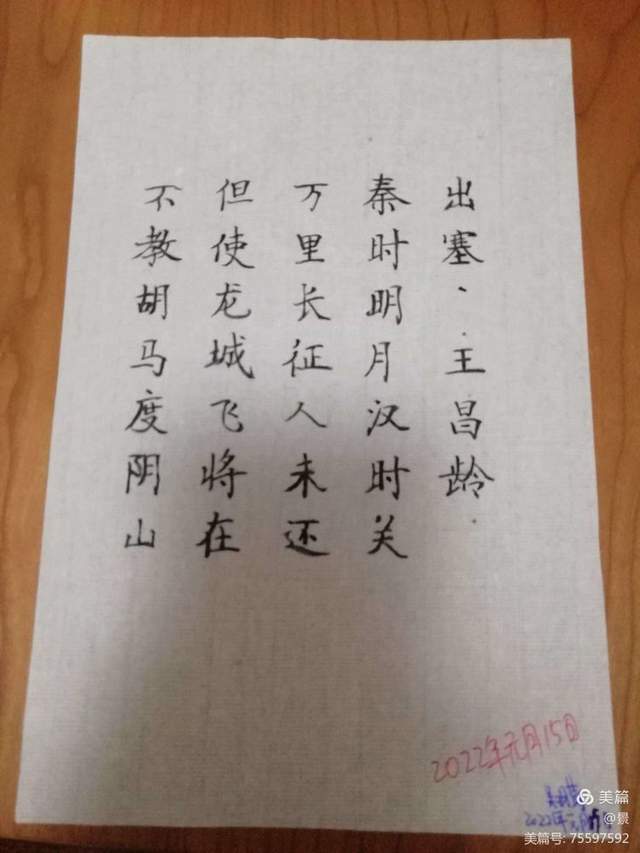 出塞··王昌龄
秦时明月汉时关
万里长征人未还
但使龙城飞将在
不教胡马度阴山
2022年元月15日
2022年元月
美篇
@景
美篇号: 75597592